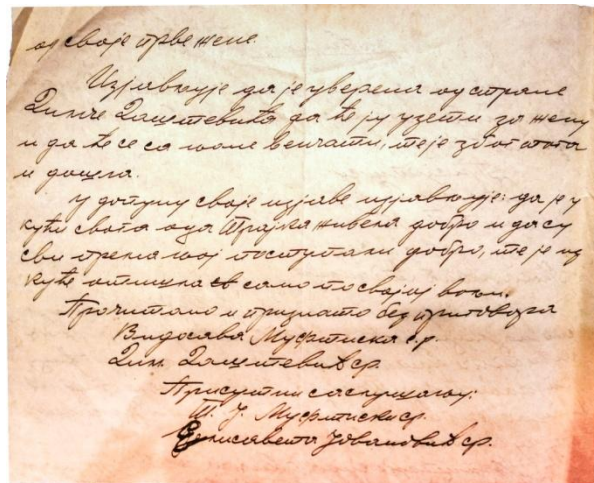 од своје прве жене.
Изјављује да је уверена од стране
Димче Дацитевића да ће ју узети за жену
и да ће се са њоме венчати, те је због тога
и дошла.
У допуну своје изјаве изјављује: да је у
кући свога оца Трајка живела добро и да су
сви према њој поступали добро, те је из
куће отишла само по својој вољи.
Прочитано и признато без приговора
Видосава Муфтиска с.р.
Дим. Дацитевић ср.
Присутни саслушању:
Т. Ј. Муфтиски ср.
Елисавета Јовановић ср.